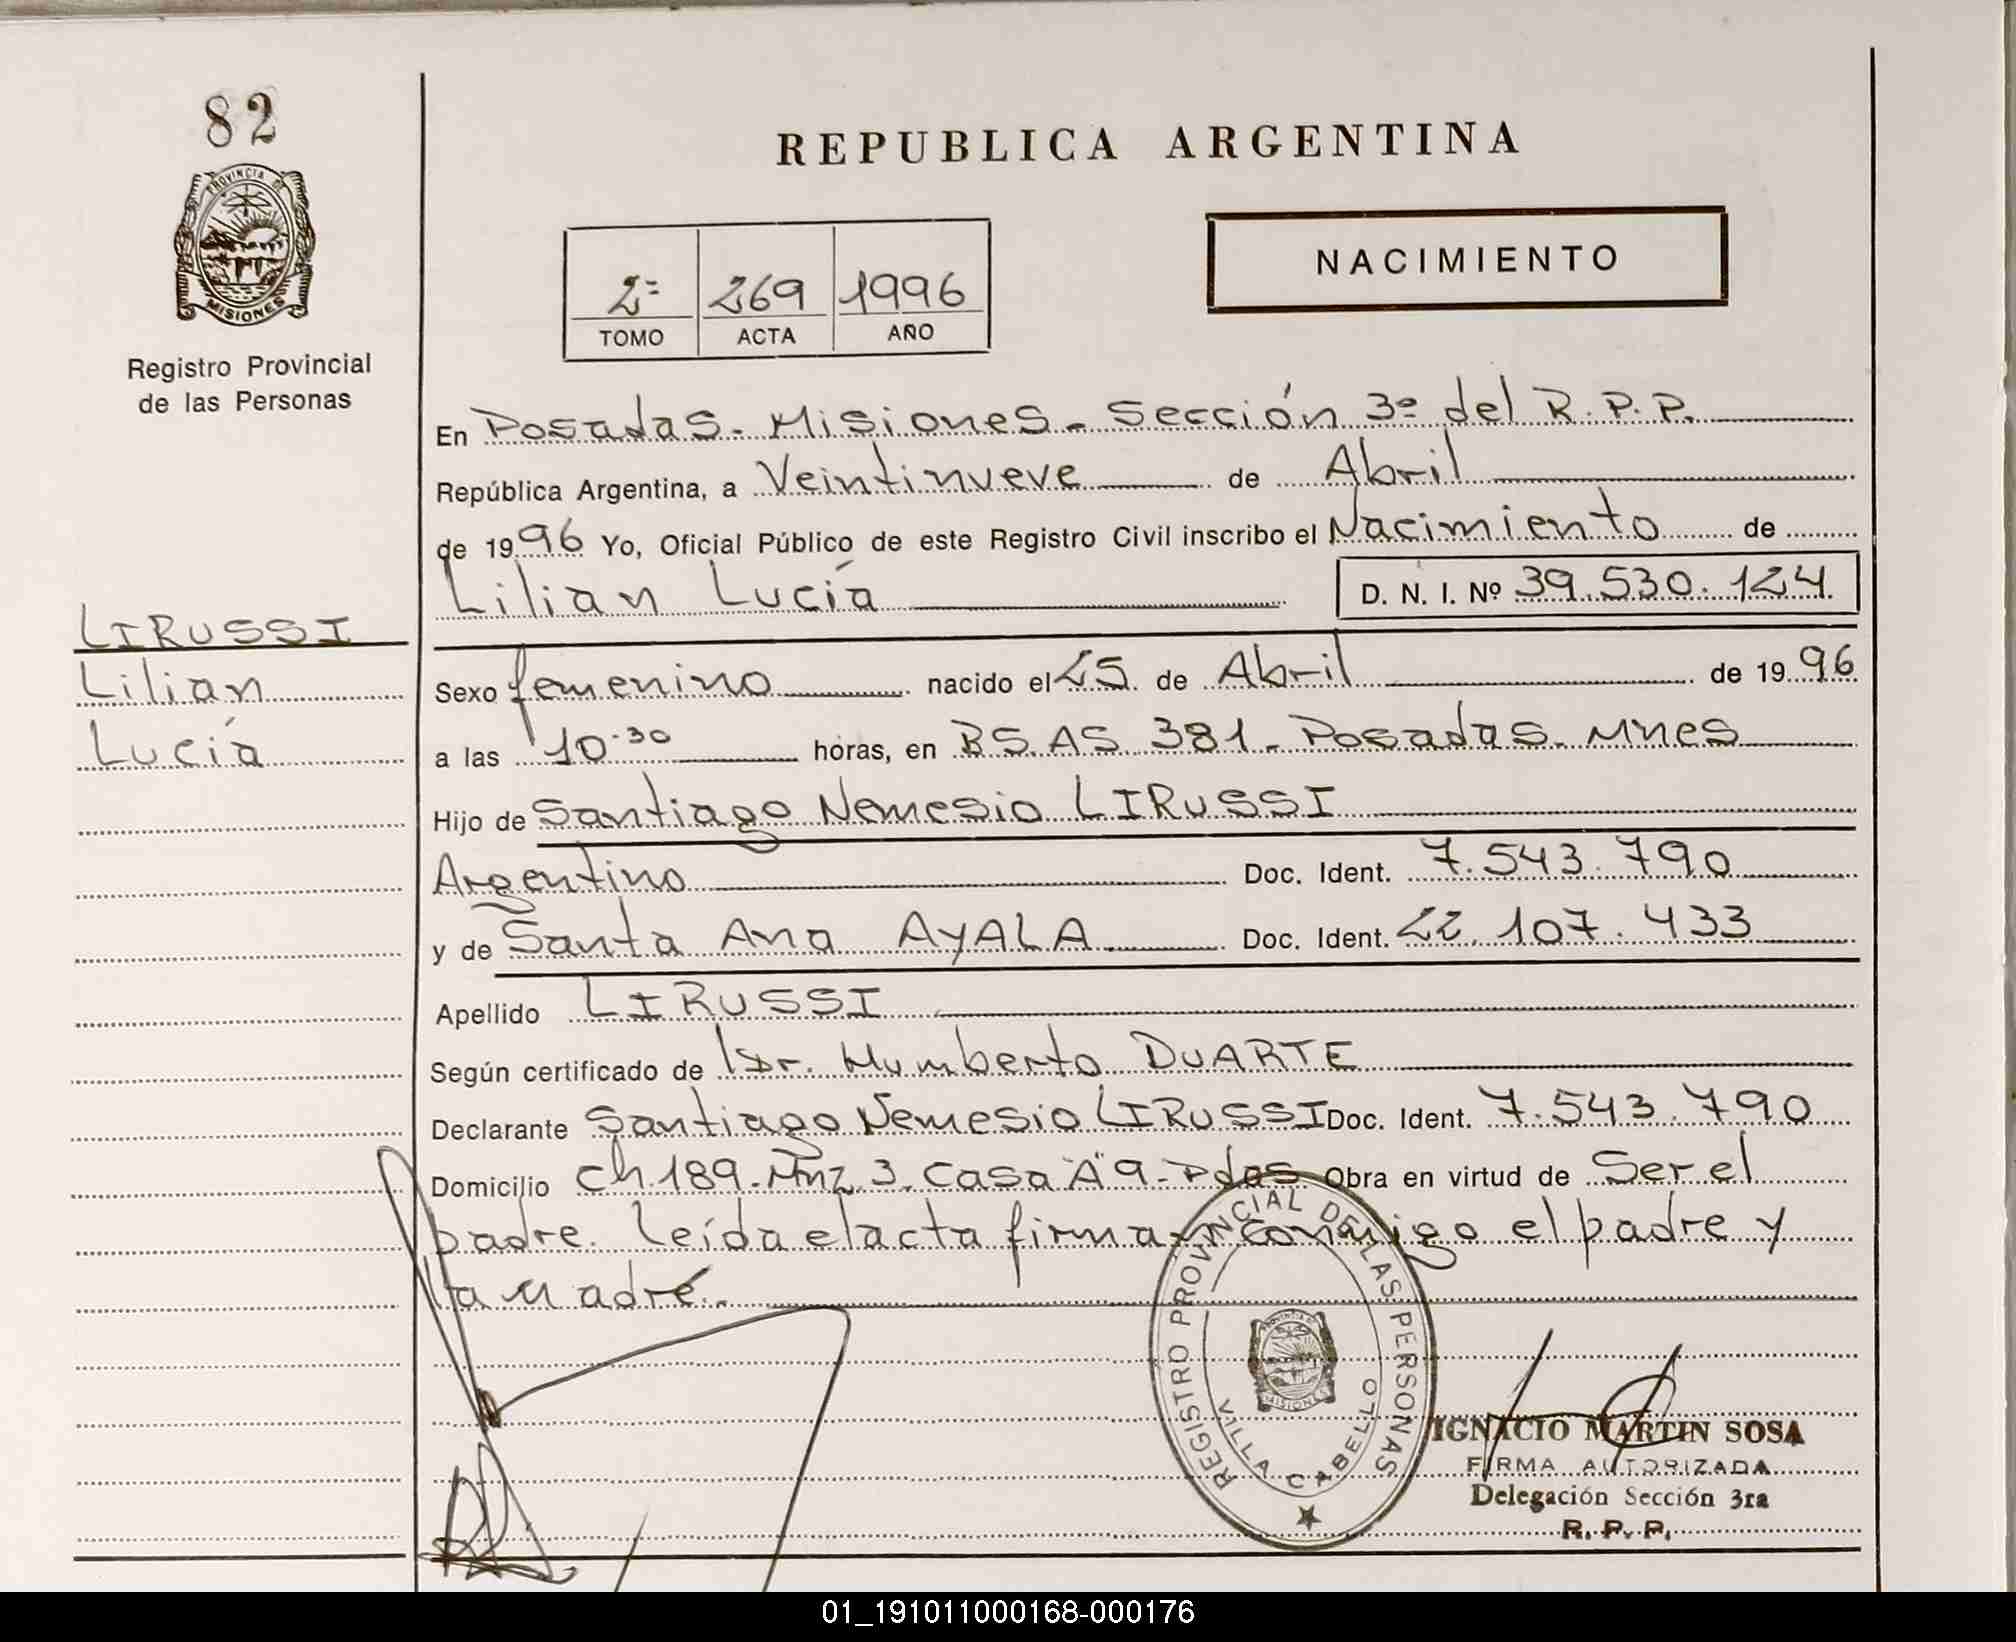 82
PROVINCIA DE
MISIONES
Registro Provincial
de las Personas
LIRUSSI
Lilian
Lucía
REPUBLICA ARGENTINA
NACIMIENTO
2º 269 1996
TOMO ACTA AÑO
En Posadas. Misiones. Sección 3º del R.P.P.
República Argentina, a Veintinueve de Abril
de 1996 Yo, Oficial Público de este Registro Civil inscribo el Nacimiento de
Lilian Lucía D. N. I. Nº 39.530.124
Sexo femenino nacido el 25 de Abril de 1996
a las 10.30 horas, en BS.AS 381. Posadas. Mnes
Hijo de Santiago Nemesio LIRUSSI
Argentino Doc. Ident. 7.543.790
y de Santa Ana AYALA Doc. Ident. 22.107.433
Apellido LIRUSSI
Según certificado de Dr. Humberto DUARTE
Declarante Santiago Nemesio LIRUSSI Doc. Ident. 7.543.790
Domicilio Ch.189. Mnz 3. Casa "A" 9. Pdas Obra en virtud de Ser el
padre. Leída el acta firman conmigo el padre y
la Madre.
REGISTRO PROVINCIAL DE LAS PERSONAS
PROVINCIA DE
MISIONES
VILLA CABELLO
IGNACIO MARTIN SOSA
FIRMA AUTORIZADA
Delegación Sección 3ra
R. P. P.
01_191011000168-000176